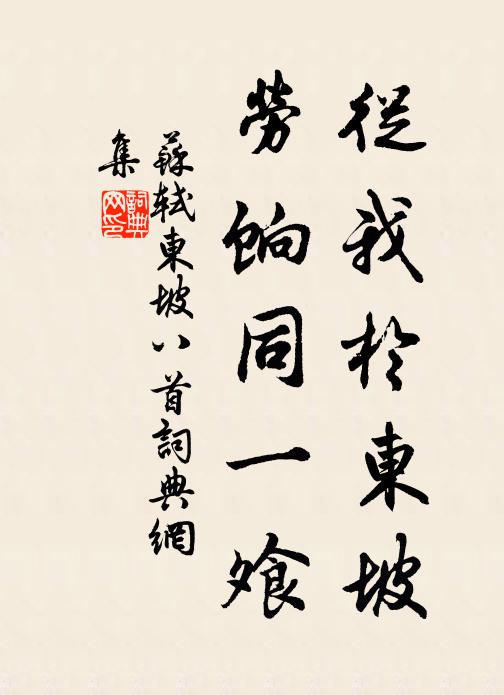 從我於東坡
勞餉同一飱
蘇軾東坡八首詞典網
集
詞典
網印